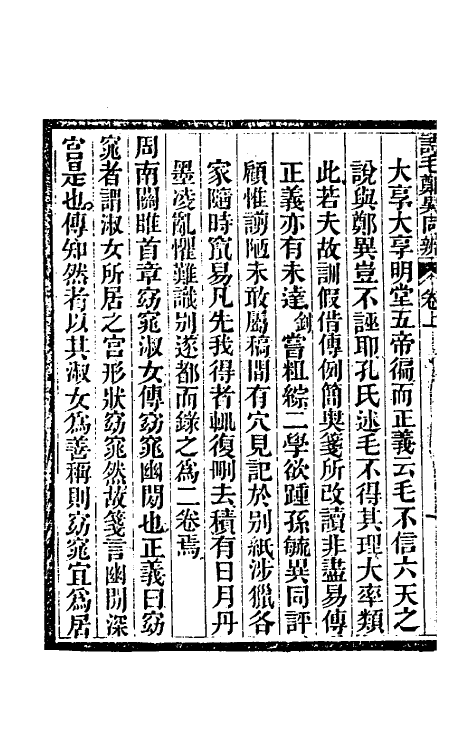 詩毛鄭異同辨 卷上
大享大享明堂五帝徧而正義云毛不信六天之
說與鄭異豈不誣耶孔氏述毛不得其理大率類
此若夫故訓假借傳例簡奧箋所改讀非盡易傳
正義亦有未達釗嘗粗綜二學欲踵孫毓異同評
顧惟謭陋未敢屬稿閒有穴見記於別紙涉獵各
家隨時竄易凡先我得者輒復刪去積有日月丹
墨凌亂懼難識別遂都而錄之為二卷焉
周南關雎首章窈窕淑女傳窈窕幽閒也正義曰窈
窕者謂淑女所居之宮形狀窈窕然故箋言幽閒深
宮是也傳知然者以其淑女為善稱則窈窕宜為居